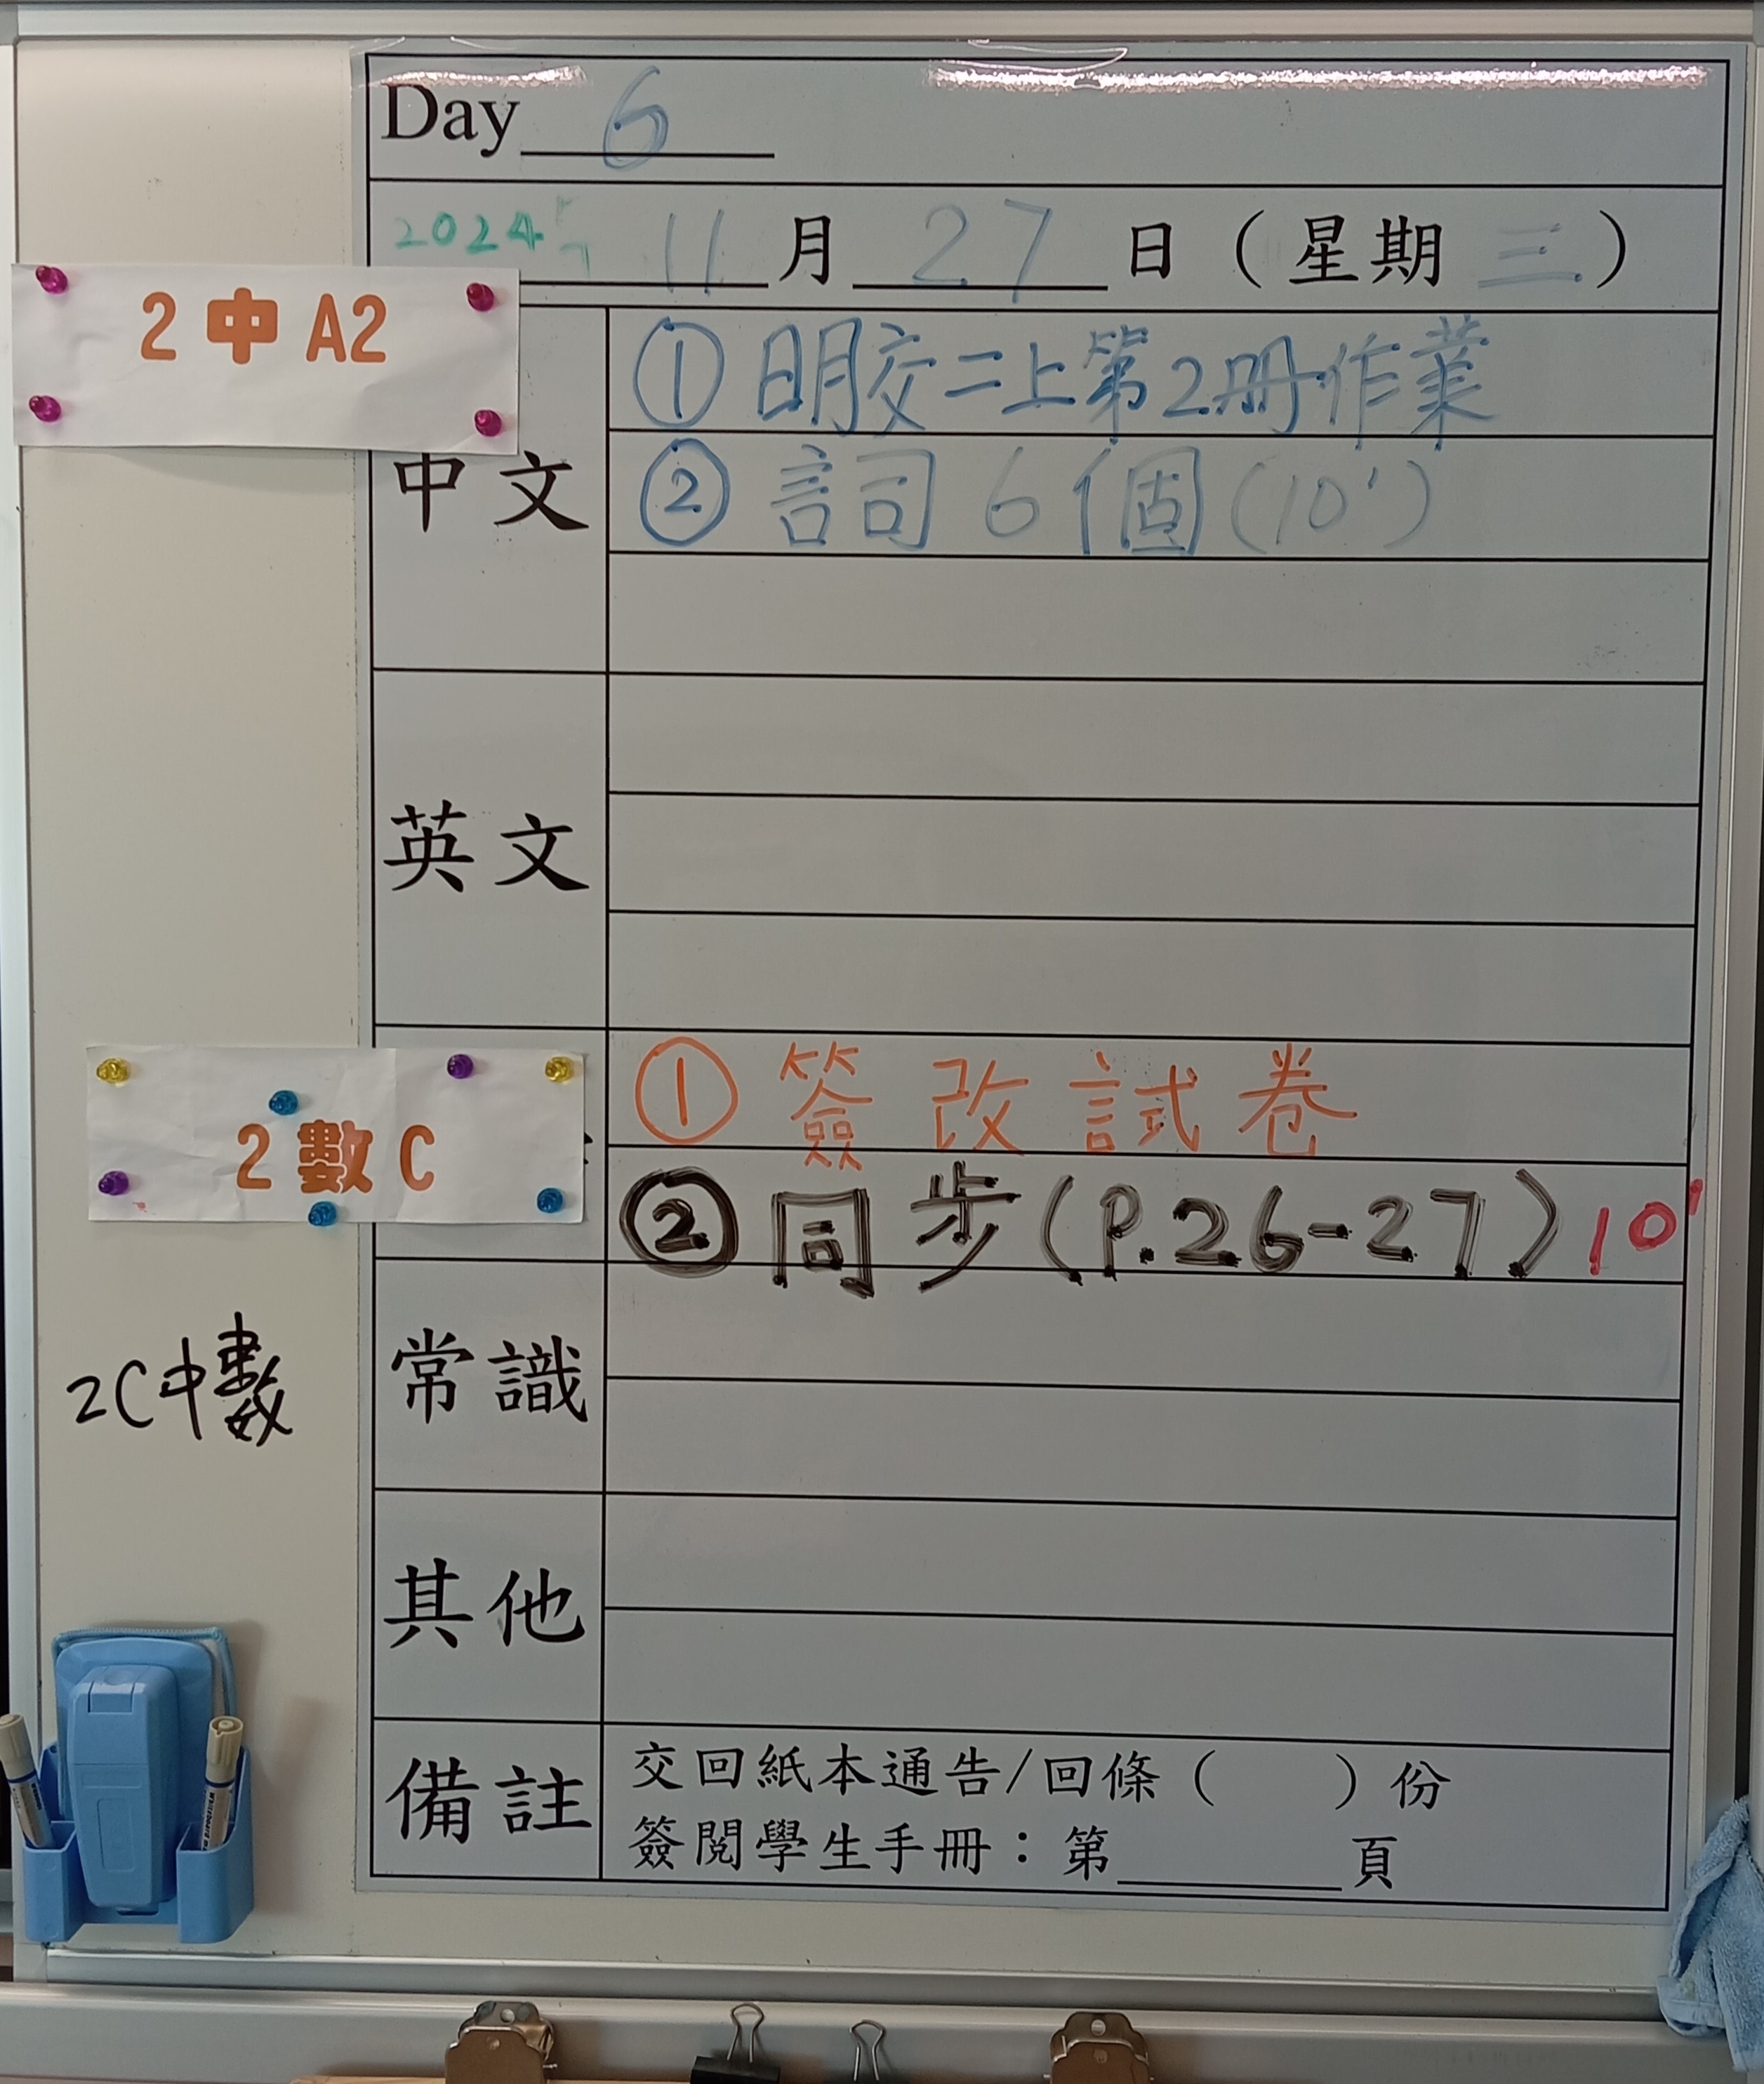 Day 6
2024年 11月27日(星期三)
2中A2
中文
①明交二上第2册作業
②詞6個(10')
英文
2數C
①簽改試卷
②同步(P.26-27)10'
2C中數
常識
其他
備註
交回紙本通告/回條( )份
簽閱學生手冊:第 頁